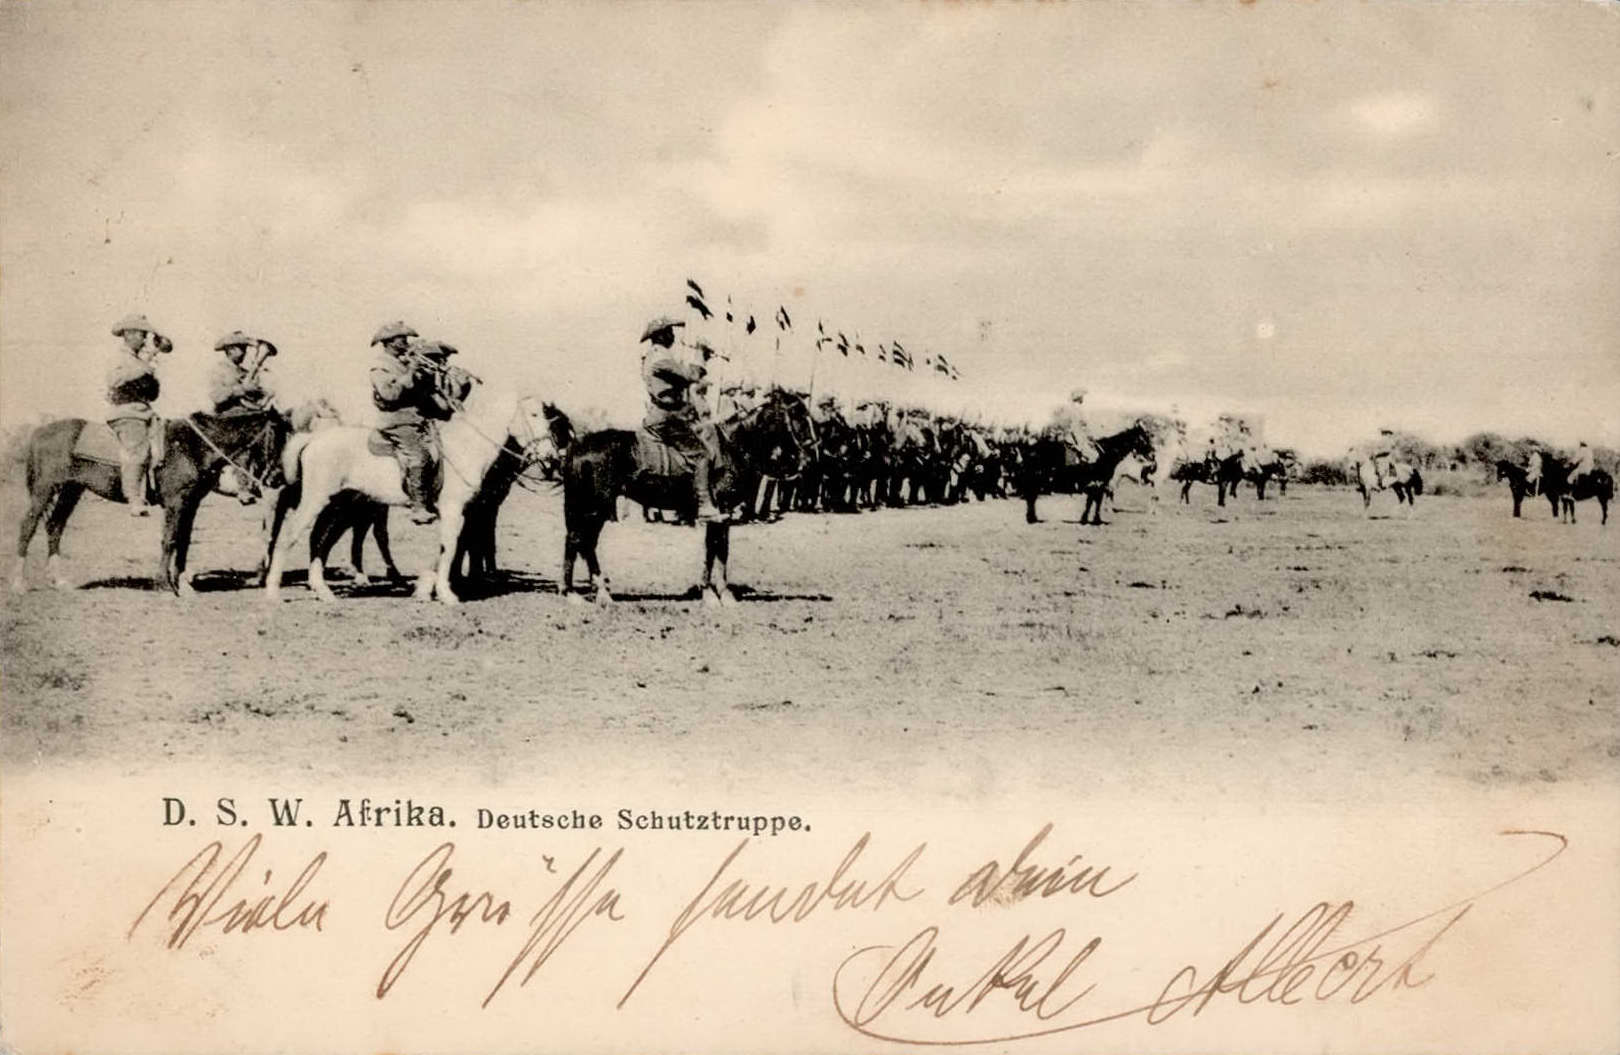 D. S. W. Afrika. Deutsche Schutztruppe.
Viele Grüsse sendet dein
Onkel Albert